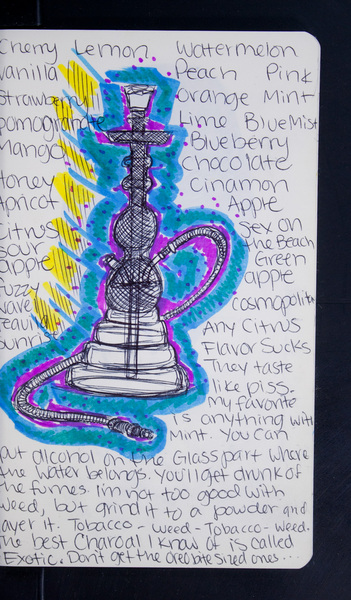 Cherry Lemon Watermelon
Vanilla Peach Pink
Strawberry Orange Mint
pomogranate Lime Blue Mist
Mango Blueberry
Chocolate
Honey Cinamon
Apricot Apple
Citrus Sex on
the Beach
Sour Green
apple apple
Fuzzy
Navel Cosmopolit
Any Citrus
Flavor Sucks
They taste
like piss.
My favorite
is anything with
Mint. You can
put alcohol on the Glass part where
the water belongs. You'll get drunk of
the fumes. I'm not too good with
weed, but grind it to a powder and
layer it. Tobacco - weed - Tobacco - weed.
The best Charcoal I know of is called
Exotic. Don't get the sized ones...